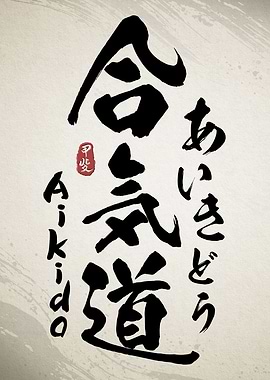 合気道
あいきどう
Aikido